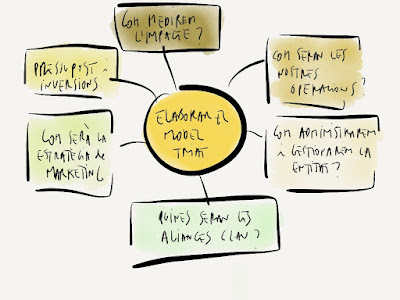 COM MEDIREM
L'IMPACTE?
PRESSUPOST i
INVERSIONS
COM SERAN LES
NOSTRES
OPERACIONS?
ELABORAR EL
MODEL
TMAT
COM SERÀ LA
ESTRATÈGIA de
MARKETING
COM ADMINISTRAREM
i GESTIONAREM LA
ENTITAT?
QUINES SERAN LES
ALIANCES CLAU?